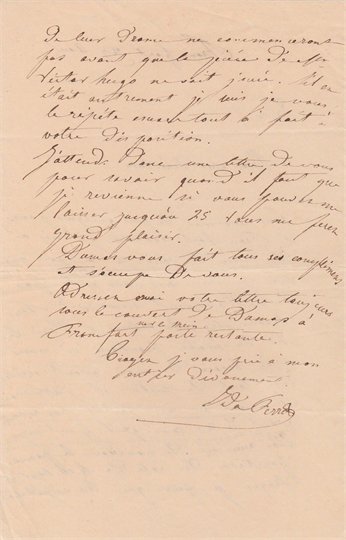 de leur Drame ne commenceront
pas avant que la pièce de Mr
Victor hugo ne soit jouée. S'il en
était autrement je suis je vous
le répète encore tout à fait à
votre disposition.
J'attends donc une lettre de vous
pour savoir quand il faut que
je revienne si vous pouvez me
laisser jusqu'au 25 vous me ferez
grand plaisir.
Dumas vous fait tous ses compliments
et s'occupe de vous.
Adressez moi votre lettre toujours
sous le couvert de Dumas à
Francfort sur le Mein poste restante.
Croyez je vous prie à mon
entier dévouement.